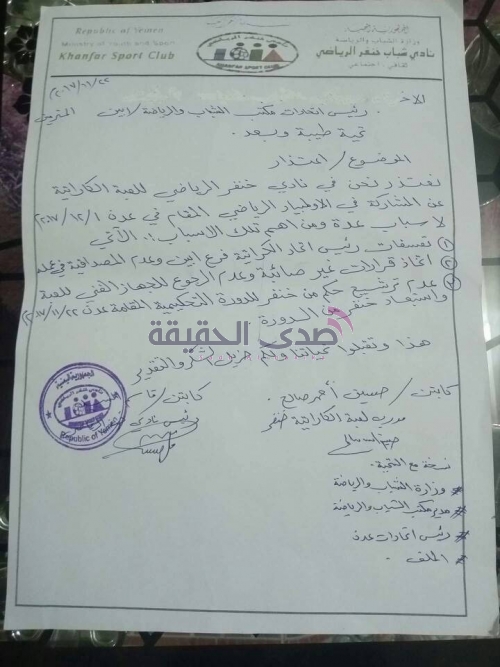 Republic of Yemen
Ministry of Youth and Sport
Khanfar Sport Club
الجمهورية اليمنية
وزارة الشباب والرياضة
نادي شباب خنفر الرياضي
ثقافي - اجتماعي
KHANFAR SPORT CLUB
٢٠١٧/١١/٢٢
الأخ
رئيس اتحادات مكتب الشباب والرياضة / أبين المحترم
تحية طيبة وبعد .
الموضوع / اعتذار
نعتذر نحن في نادي خنفر الرياضي للعبة الكاراتية
عن المشاركة في الاولمبياد الرياضي المقام في عدن ٢٠١٧/١٢/١
لاسباب عدة ومن اهم تلك الاسباب :. الآتي
١ تعسفات رئيس اتحاد الكراتية فرع ابين وعدم المصداقية في عمله
٢ اتخاذ قرارات غير صائبة وعدم الرجوع للجهاز الفني للعبة
٣ عدم ترشيح حكم من خنفر للدورة التحكيمية المقامة عدن ٢٠١٧/١١/٢٢
واستبعاد خنفر من الدورة
صدى الحقيقة
هذا وتقبلوا تحياتنا ولكم جزيل الشكر والتقدير
كابتن / حسين أحمد صالح .
مدرب لعبة الكاراتية خنفر
كابتن /
رئيس نادي
Republic of Yemen
نسخة مع التحية .
# وزارة الشباب والرياضة
# مدير مكتب الشباب والرياضة
# رئيس اتحادات عدن
# الملف .